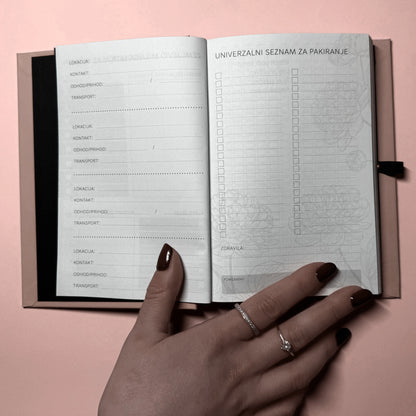 LOKACIJA:
KONTAKT:
ODHOD/PRIHOD: /
TRANSPORT:
LOKACIJA:
KONTAKT:
ODHOD/PRIHOD: /
TRANSPORT:
LOKACIJA:
KONTAKT:
ODHOD/PRIHOD: /
TRANSPORT:
LOKACIJA:
KONTAKT:
ODHOD/PRIHOD:
TRANSPORT:
UNIVERZALNI SEZNAM ZA PAKIRANJE
ZDRAVILA: